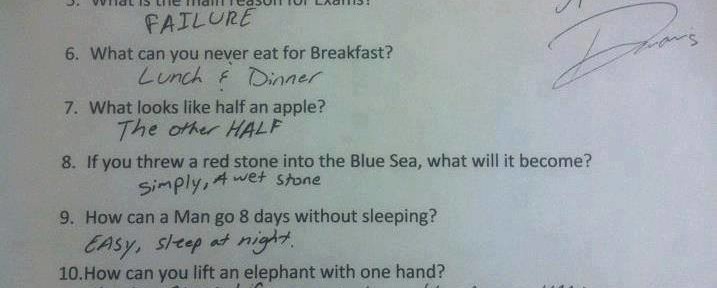 5. What is the main reason for Exams?
FAILURE
6. What can you never eat for Breakfast?
Lunch & Dinner
7. What looks like half an apple?
The other HALF
8. If you threw a red stone into the Blue Sea, what will it become?
Simply, A wet stone
9. How can a Man go 8 days without sleeping?
EASY, sleep at night.
10.How can you lift an elephant with one hand?